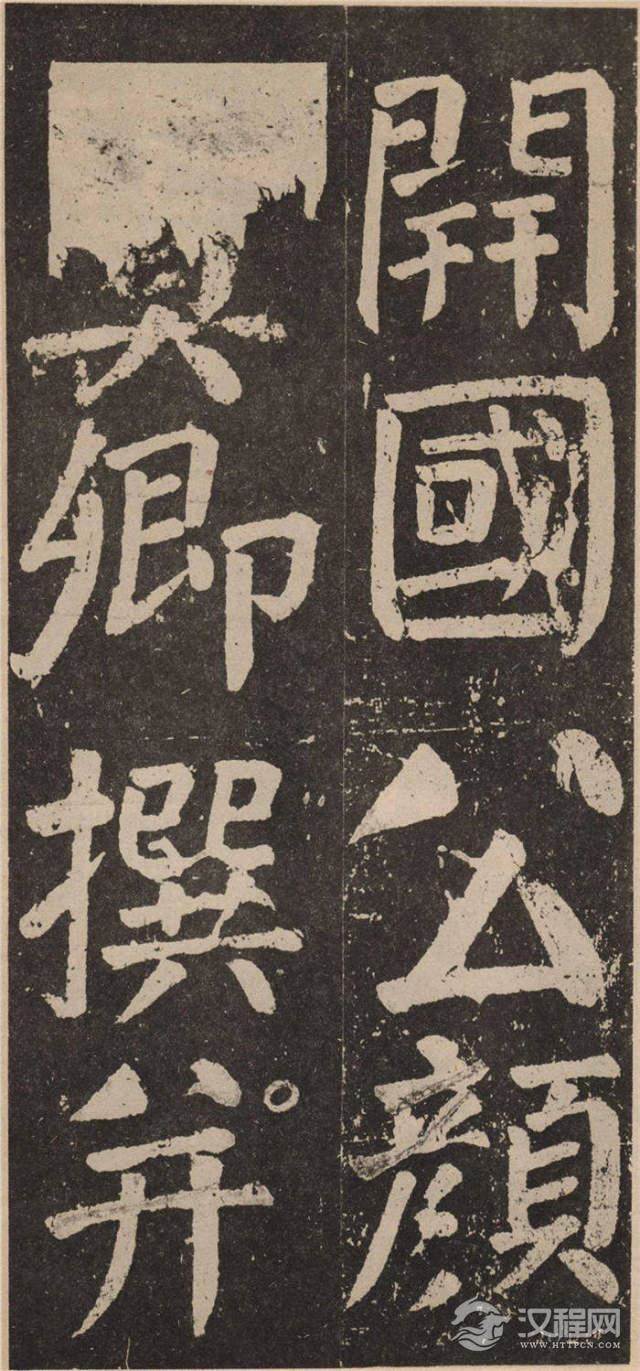 開國公顏
真卿撰并
汉程网
WWW.HTTPCN.COM